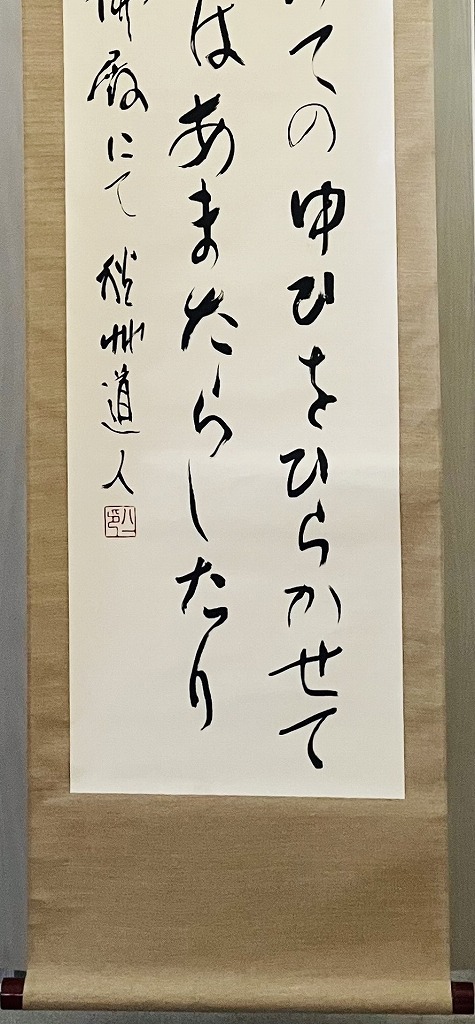 てのゆひをひらかせて
はあまたらしたり
佛殿にて 秋艸道人
八一印